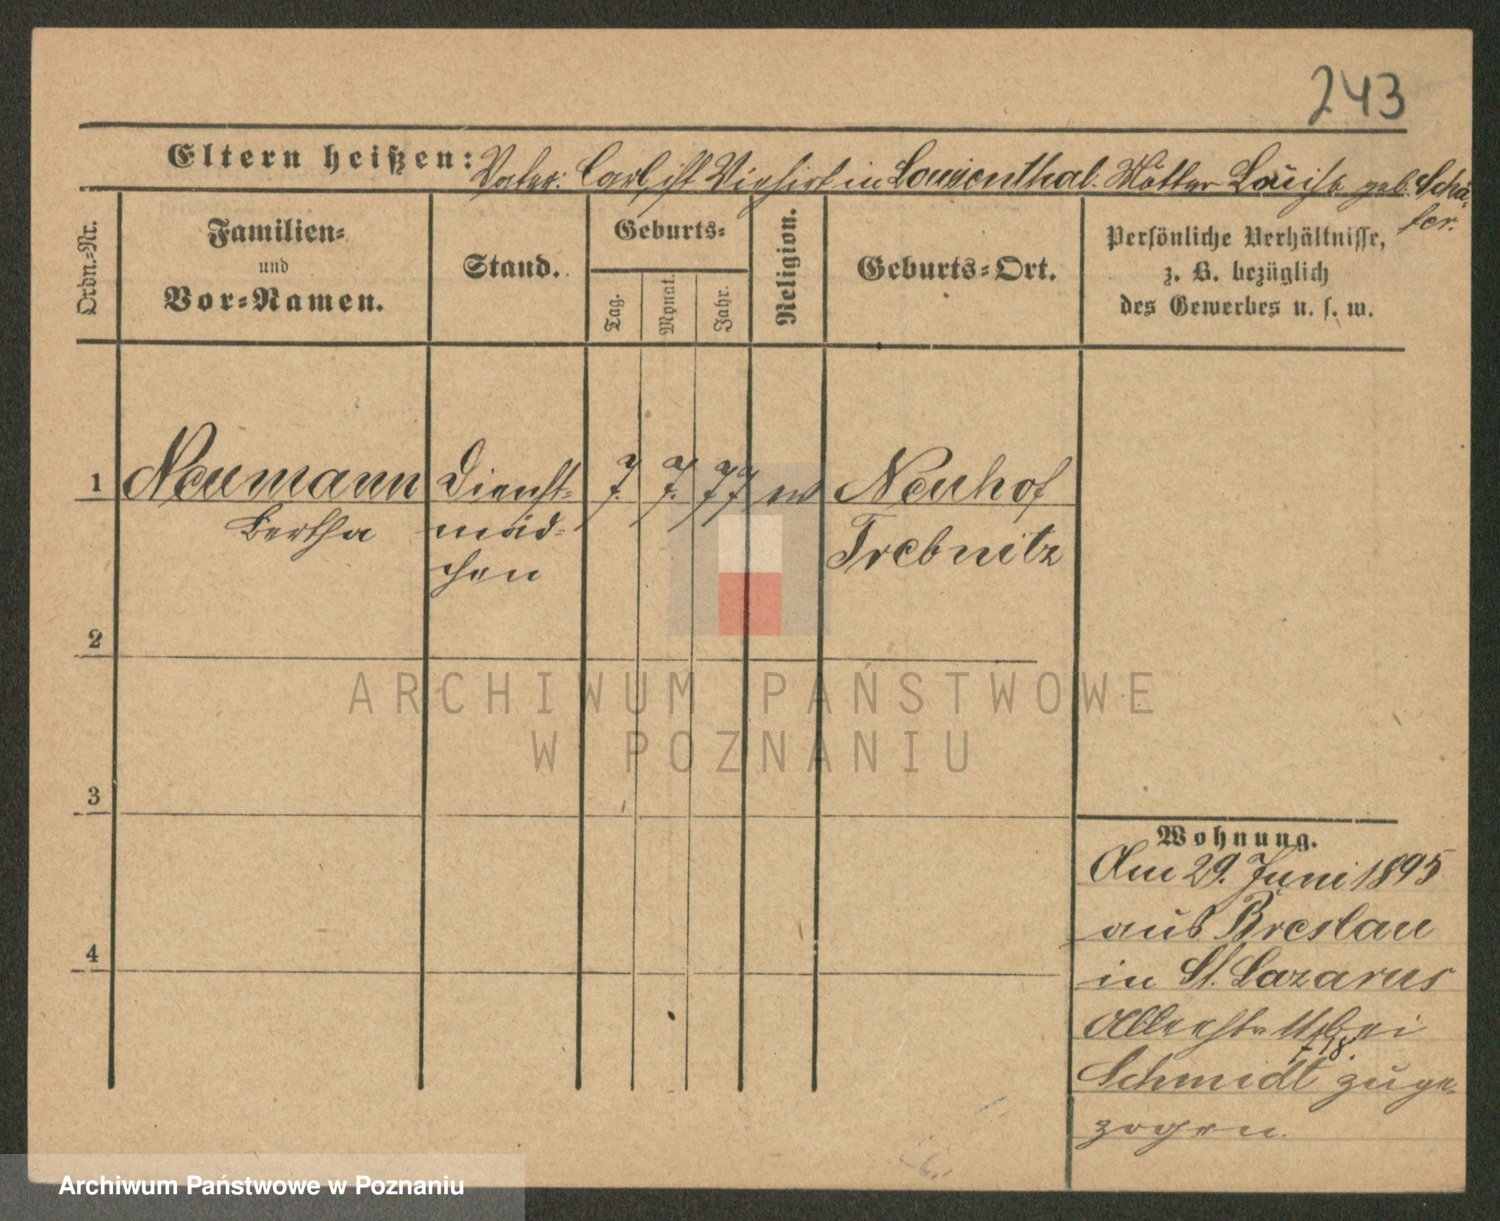 243
Eltern heißen: Vater: Carl ist Viehirt in Louisenthal. Mutter Louise geb. Schä-
fer.
Ordn.-Nr.
Familien-
und
Vor-Namen.
Stand.
Geburts-
Tag.
Monat.
Jahr.
Religion.
Geburts-Ort.
Persönliche Verhältnisse,
z. B. bezüglich
des Gewerbes u. s. w.
1 Neumann Dienst- 7. 7. 77 Neuhof
Bertha mäd- Trebnitz
chen
2
3
4
Wohnung.
Am 29. Juni 1895
aus Breslau
in St. Lazarus
bei
Schmidt zuge-
zogen.
ARCHIWUM PAŃSTWOWE
W POZNANIU
Archiwum Państwowe w Poznaniu